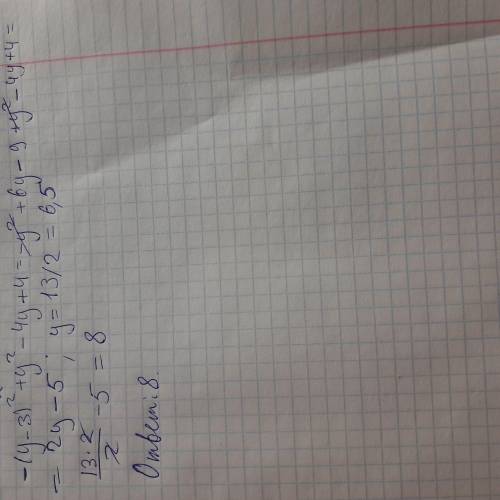 -(y-3)²+y²-4y+4=-y²+6y-9+y²-4y+4=
=2y-5; y=13/2=6,5
13·2/2-5=8
Ответ: 8.